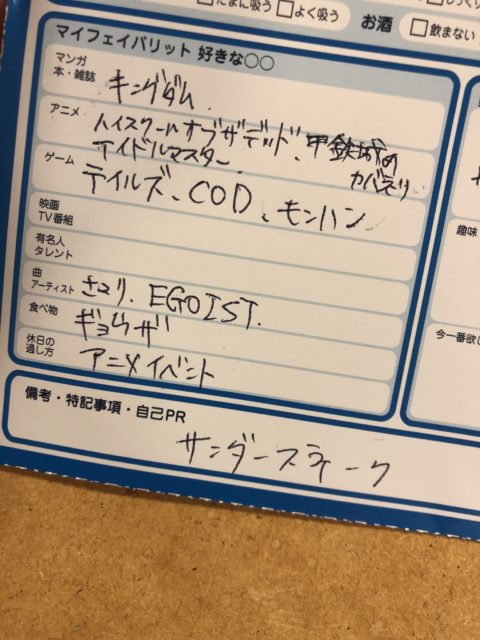 たまに吸う よく吸う
お酒 飲まない
マイフェイバリット 好きな〇〇
マンガ
本・雑誌
キングダム
アニメ
ハイスクールオブザデッド、甲鉄城の
カバネリ
アイドルマスター
ゲーム
テイルズ、COD、モンハン
映画
TV番組
有名人
タレント
曲
アーティスト
さユり. EGOIST.
食べ物
ギョウザ
休日の
過し方
アニメイベント
備考・特記事項・自己PR
サンダースネーク
趣味
今一番欲し